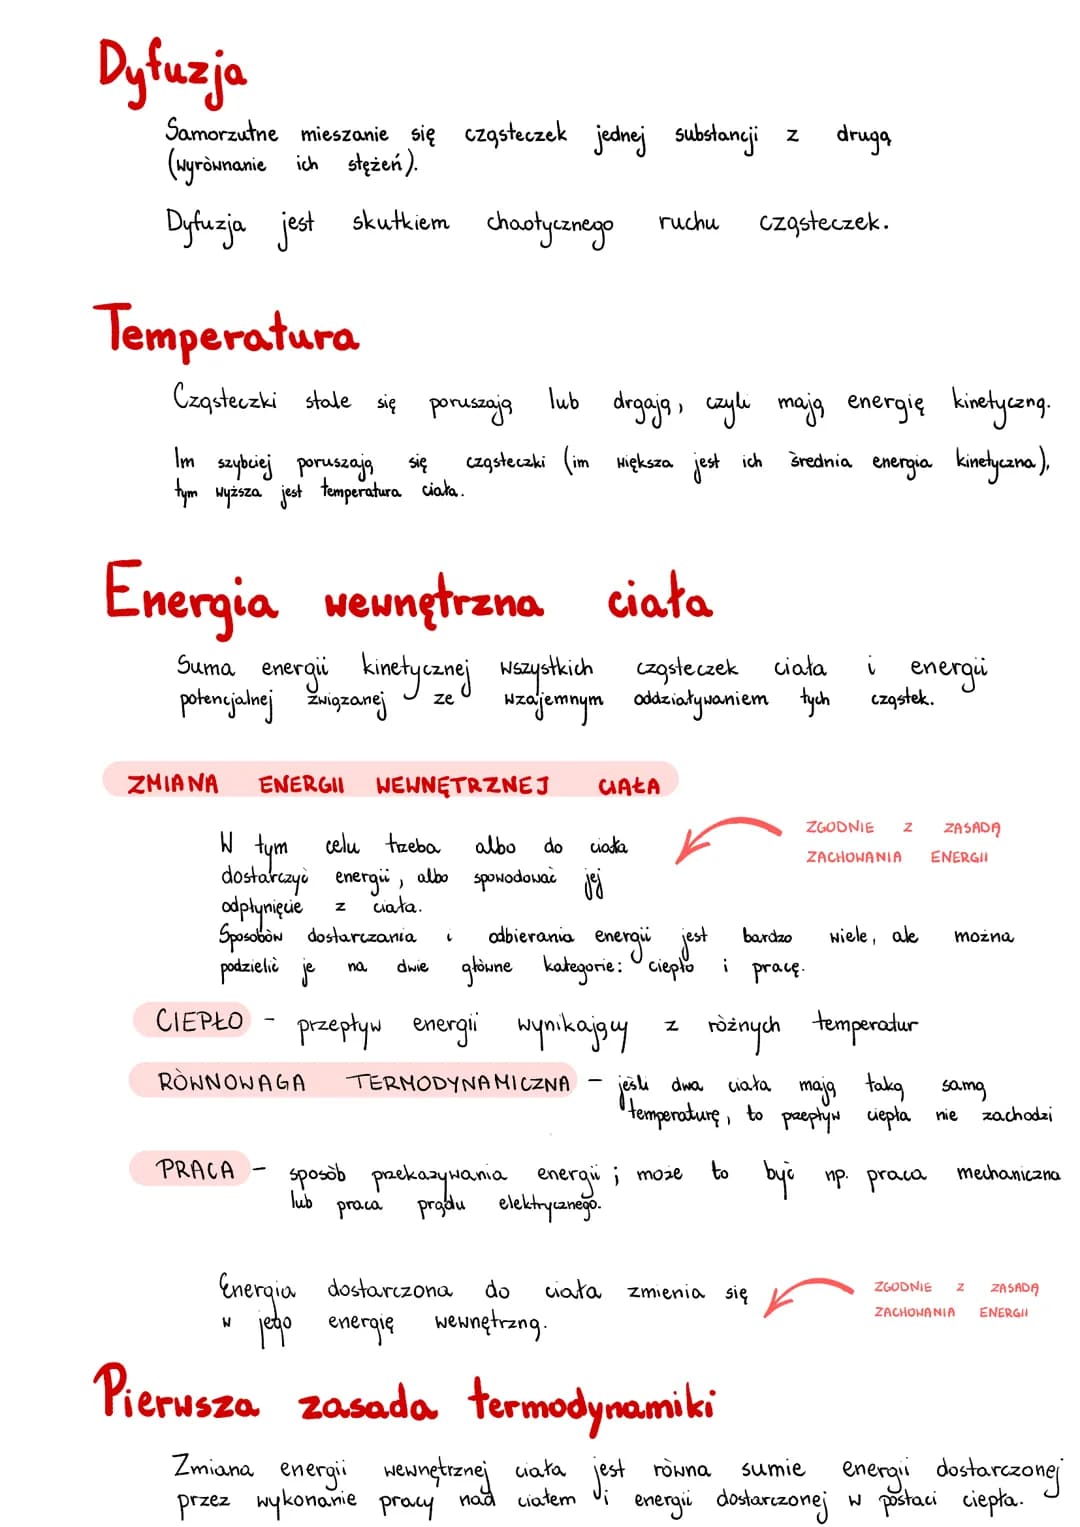 Dyfuzja
Samorzutne mieszanie się cząsteczek jednej substancji z drugą
(wyrównanie ich stężeń).
Dyfuzja jest skutkiem chaotycznego ruchu cząsteczek.
Temperatura
Cząsteczki stale się poruszają lub drgają, czyli mają energię kinetyczną.
Im szybciej poruszają się cząsteczki (im większa jest ich średnia energia kinetyczna),
tym wyższa jest temperatura ciała.
Energia wewnętrzna ciała
Suma energii kinetycznej wszystkich cząsteczek ciała i energii
potencjalnej związanej ze wzajemnym oddziaływaniem tych cząstek.
ZMIANA ENERGII WEWNĘTRZNEJ CIAŁA
ZGODNIE Z ZASADĄ
ZACHOWANIA ENERGII
W tym celu trzeba albo do ciała
dostarczyć energii, albo spowodować jej
odpłynięcie z ciała.
Sposobów dostarczania i odbierania energii jest bardzo wiele, ale można
podzielić je na dwie główne kategorie: ciepło i pracę.
CIEPŁO - przepływ energii wynikający z różnych temperatur
RÓWNOWAGA TERMODYNAMICZNA - jeśli dwa ciała mają taką samą
temperaturę, to przepływ ciepła nie zachodzi
PRACA - sposób przekazywania energii; może to być np. praca mechaniczna
lub praca prądu elektrycznego.
Energia dostarczona do ciała zmienia się
w jego energię wewnętrzną.
ZGODNIE Z ZASADĄ
ZACHOWANIA ENERGII
Pierwsza zasada termodynamiki
Zmiana energii wewnętrznej ciała jest równa sumie energii dostarczonej
przez wykonanie pracy nad ciałem i energii dostarczonej w postaci ciepła.